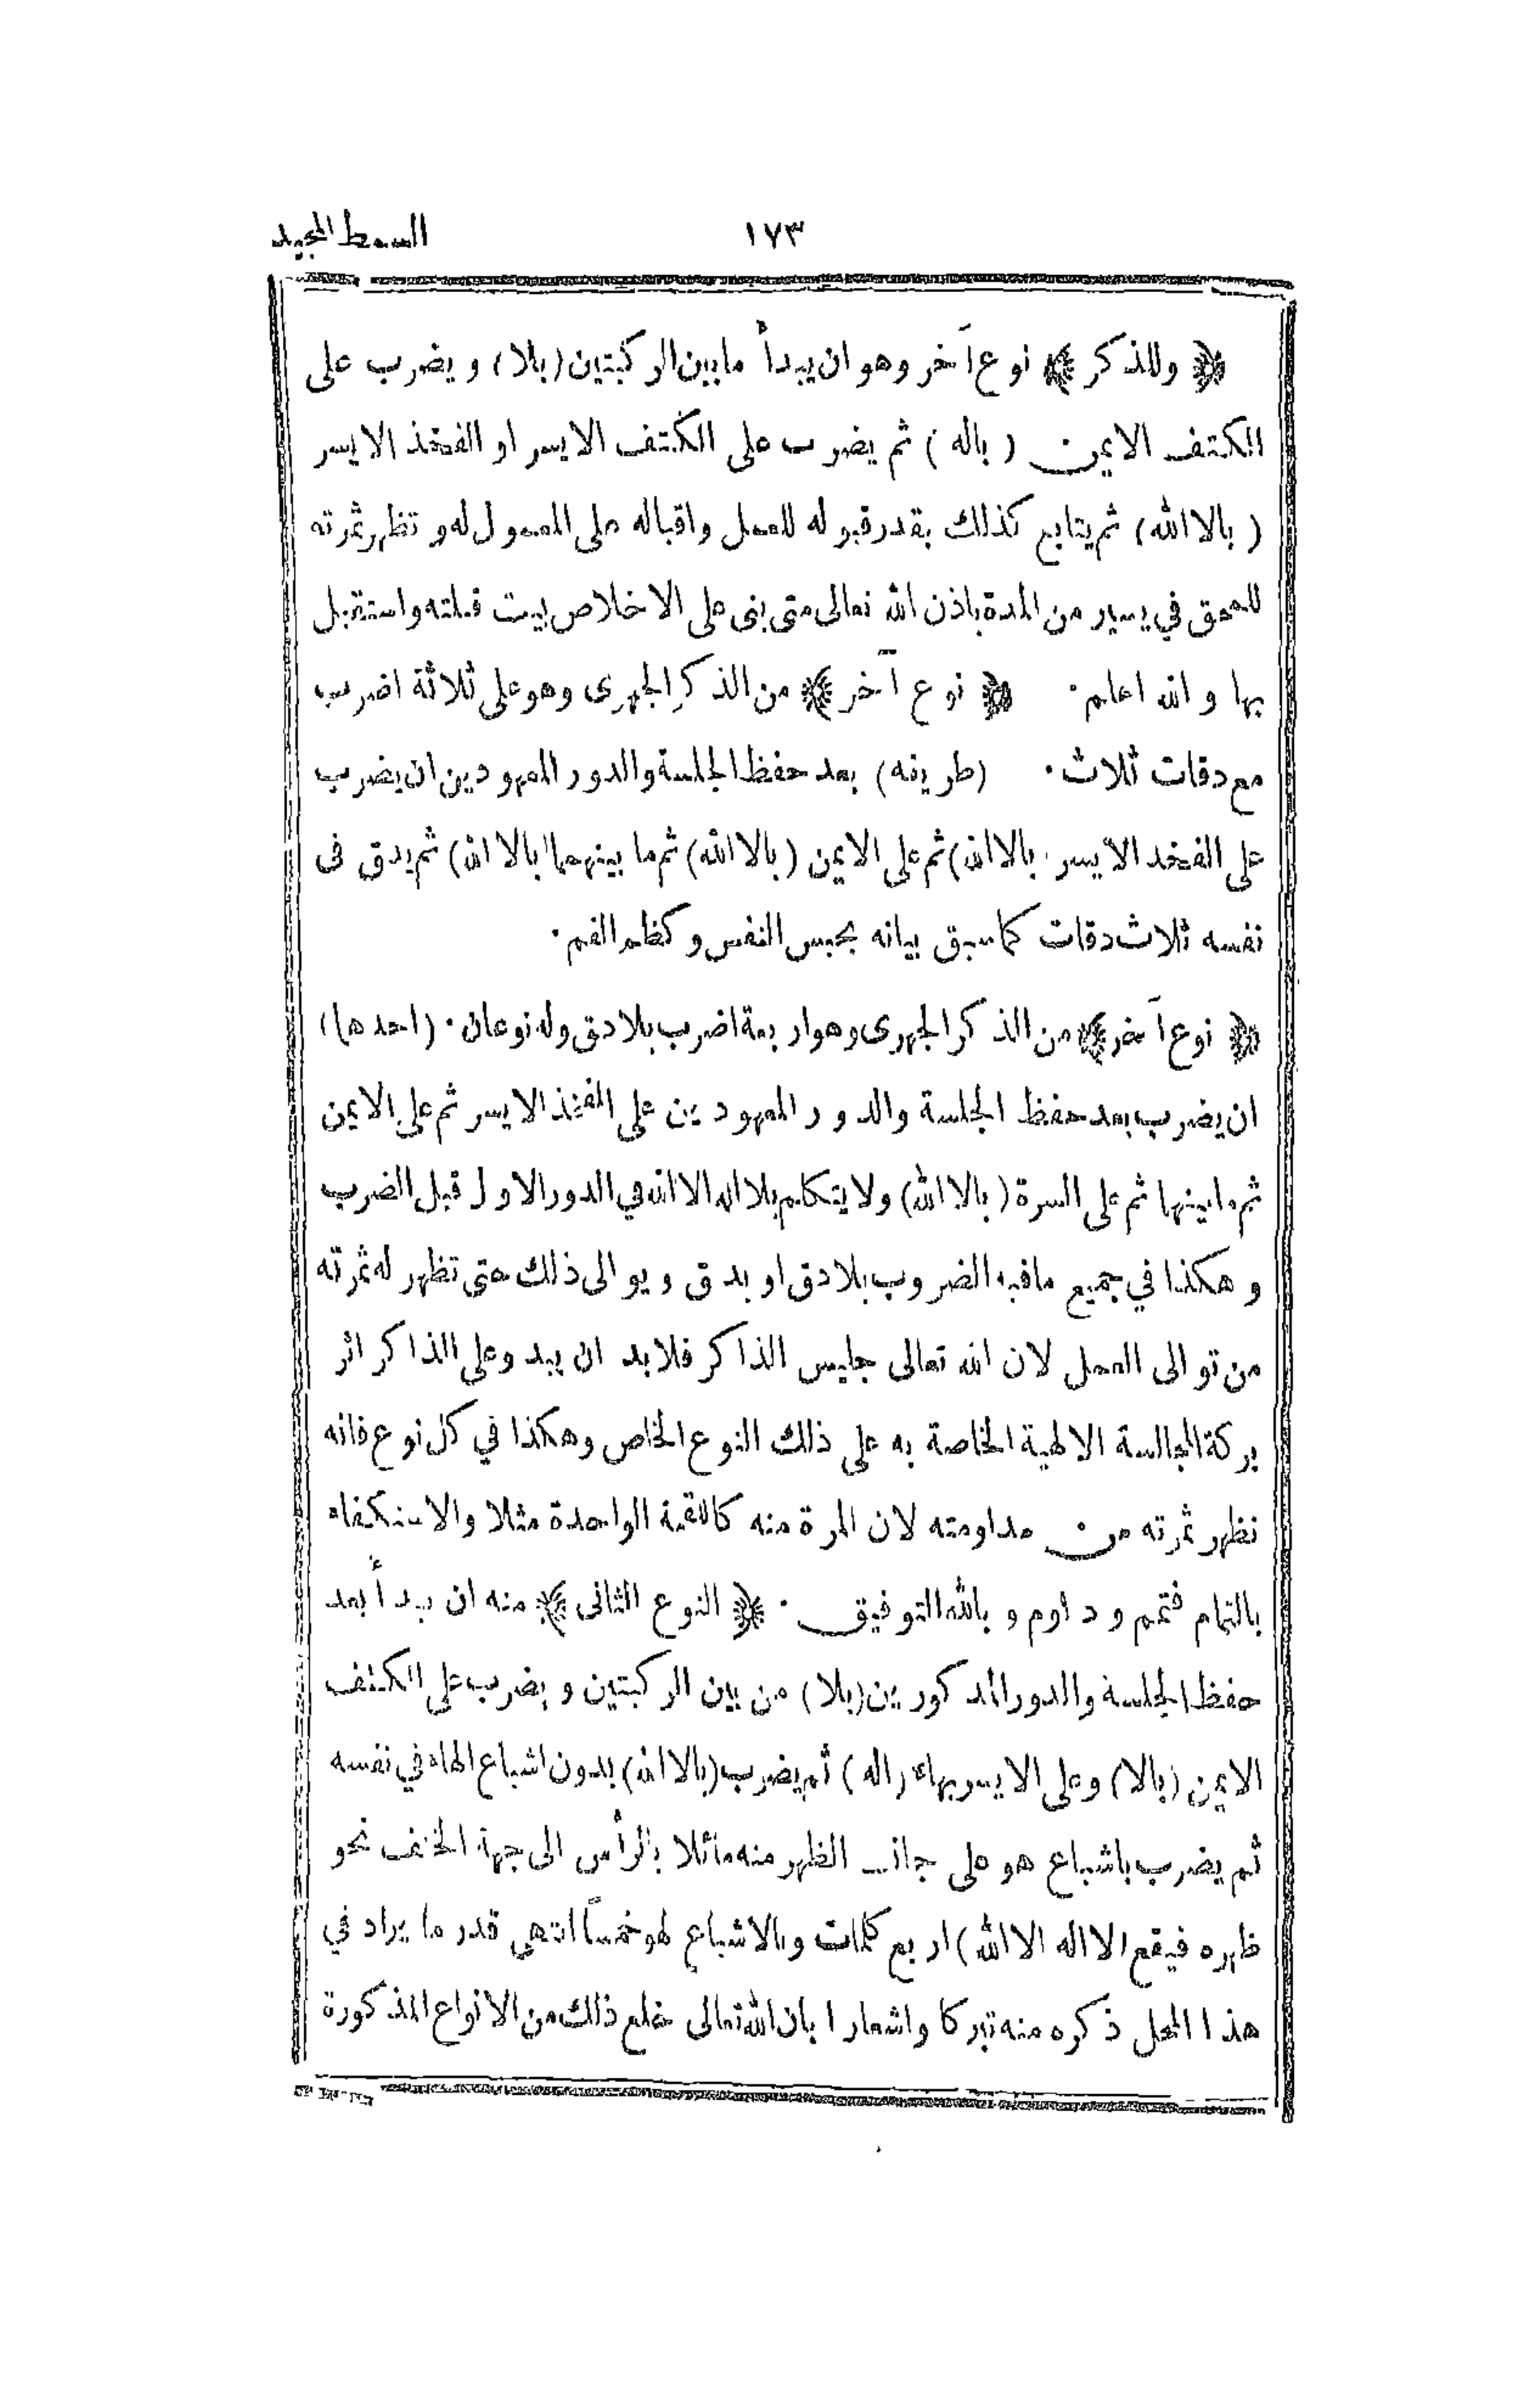 ١٧٣ السمط المجيد
﴿ وللذكر ﴾ نوع آخر وهو ان يبدأ ما بين الركبتين (بلا) ويضرب على
الكتف الايمن (باله) ثم يضرب على الكتف الايسر او الفخذ الايسر
(بالا الله) ثم يتابع كذلك بقدر قبوله للعمل واقباله على المعمول له وتظهر ثمرته
للمحق في يسير من المدة باذن الله تعالى متى بنى على الاخلاص بيت قبلته واستقبل
بها والله اعلم · ﴿ نوع آخر ﴾ من الذكر الجهرى وهو على ثلاثة اضرب
مع دقات ثلاث · (طريقه) بعد حفظ الجلسة والدور المعهودين ان يضرب
على الفخذ الايسر (بالا الله) ثم على الايمن (بالا الله) ثم ما بينهما (بالا الله) ثم يدق فى
نفسه ثلاث دقات كما سبق بيانه بحبس النفس وكظم الفم ·
﴿ نوع آخر ﴾ من الذكر الجهرى وهو اربعة اضرب بلا دق وله نوعان · (احدها)
ان يضرب بعد حفظ الجلسة والدور المعهودين على الفخذ الايسر ثم على الايمن
ثم ما بينها ثم على السرة (بالا الله) ولا يتكلم بلا اله الا الله في الدور الاول قبل الضرب
وهكذا في جميع ما فيه الضروب بلا دق او بدق ويوالى ذلك حتى تظهر له ثمرته
من توالى العمل لان الله تعالى جليس الذاكر فلا بد ان يبدو على الذاكر اثر
بركة المجالسة الالهية الخاصة به على ذلك النوع الخاص وهكذا في كل نوع فانه
تظهر ثمرته من مداومته لان المرة منه كاللقمة الواحدة مثلا والاستكفاء
بالتمام فتمم وداوم وبالله التوفيق · ﴿ النوع الثانى ﴾ منه ان يبدأ بعد
حفظ الجلسة والدور المذكورين (بلا) من بين الركبتين ويضرب على الكتف
الايمن (بالا) وعلى الايسر بهاء (اله) ثم يضرب (بالا الله) بدون اشباع الهاء في نفسه
ثم يضرب باشباع هو على جانب الظهر منه مائلا بالرأس الى جهة الخلف نحو
ظهره فيقع (لا اله الا الله) اربع كلمات وبالاشباع لهو خمسًا انتهى قدر ما يراد في
هذا المحل ذكره منه تبركا واشعارا بان الله تعالى خلع ذلك من الانواع المذكورة